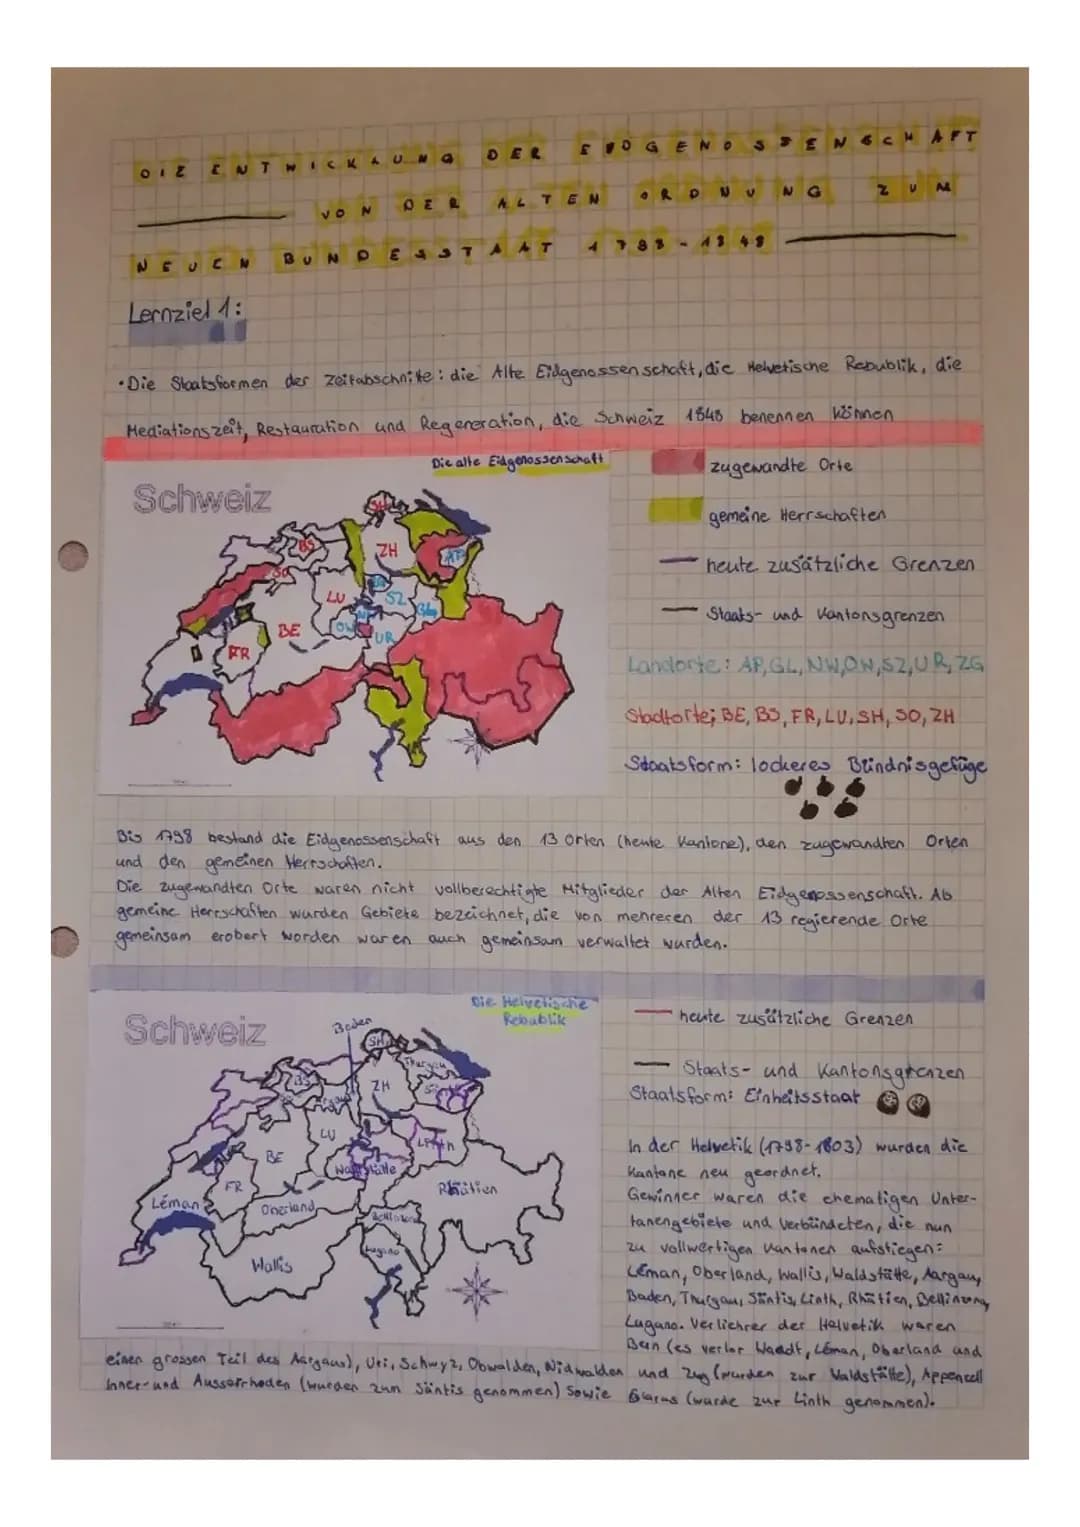 DIE ENTWICKLUNG DER EIDGENOSSENSCHAFT
VON DER ALTEN ORDNUNG ZUM
NEUEN BUNDESSTAAT 1788-1848
Lernziel 1:
•Die Staatsformen der Zeitabschnitte: die Alte Eidgenossenschaft, die Helvetische Rebublik, die
Mediationszeit, Restauration und Regeneration, die Schweiz 1848 benennen können
Die alte Eidgenossenschaft
Schweiz
SH
BS
ZH
SO
LU
SZ
BE
OW
UR
FR
zugewandte Orte
gemeine Herrschaften
heute zusätzliche Grenzen
Staats- und Kantonsgrenzen
Landorte: AP, GL, NW, OW, SZ, UR, ZG
Stadtorte; BE, BS, FR, LU, SH, SO, ZH
Staatsform: lockeres Bündnisgefüge
Bis 1798 bestand die Eidgenossenschaft aus den 13 Orten (heute Kantone), den zugewandten Orten
und den gemeinen Herrschaften.
Die zugewandten Orte waren nicht vollberechtigte Mitglieder der Alten Eidgenossenschaft. Als
gemeine Herrschaften wurden Gebiete bezeichnet, die von mehreren der 13 regierende Orte
gemeinsam erobert worden waren auch gemeinsam verwaltet wurden.
Die Helvetische
Rebublik
Schweiz
Baden
SH
Thurgau
BS
ZH
LU
Linth
BE
Waldstätte
FR
Rhätien
Léman
Oberland
Bellinzona
Wallis
Lugano
heute zusätzliche Grenzen
Staats- und Kantonsgrenzen
Staatsform: Einheitsstaat
In der Helvetik (1798-1803) wurden die
Kantone neu geordnet.
Gewinner waren die ehemaligen Unter-
tanengebiete und Verbündeten, die nun
zu vollwertigen Kantonen aufstiegen:
Léman, Oberland, Wallis, Waldstätte, Aargau,
Baden, Thurgau, Säntis, Linth, Rhätien, Bellinzona,
Lugano. Verliehrer der Helvetik waren
Bern (es verlor Waadt, Léman, Oberland und
einen grossen Teil des Aargaus), Uri, Schwyz, Obwalden, Nidwalden und Zug (wurden zur Waldstätte), Appenzell
Inner- und Ausserrhoden (wurden zum Säntis genommen) sowie Glarus (wurde zur Linth genommen).